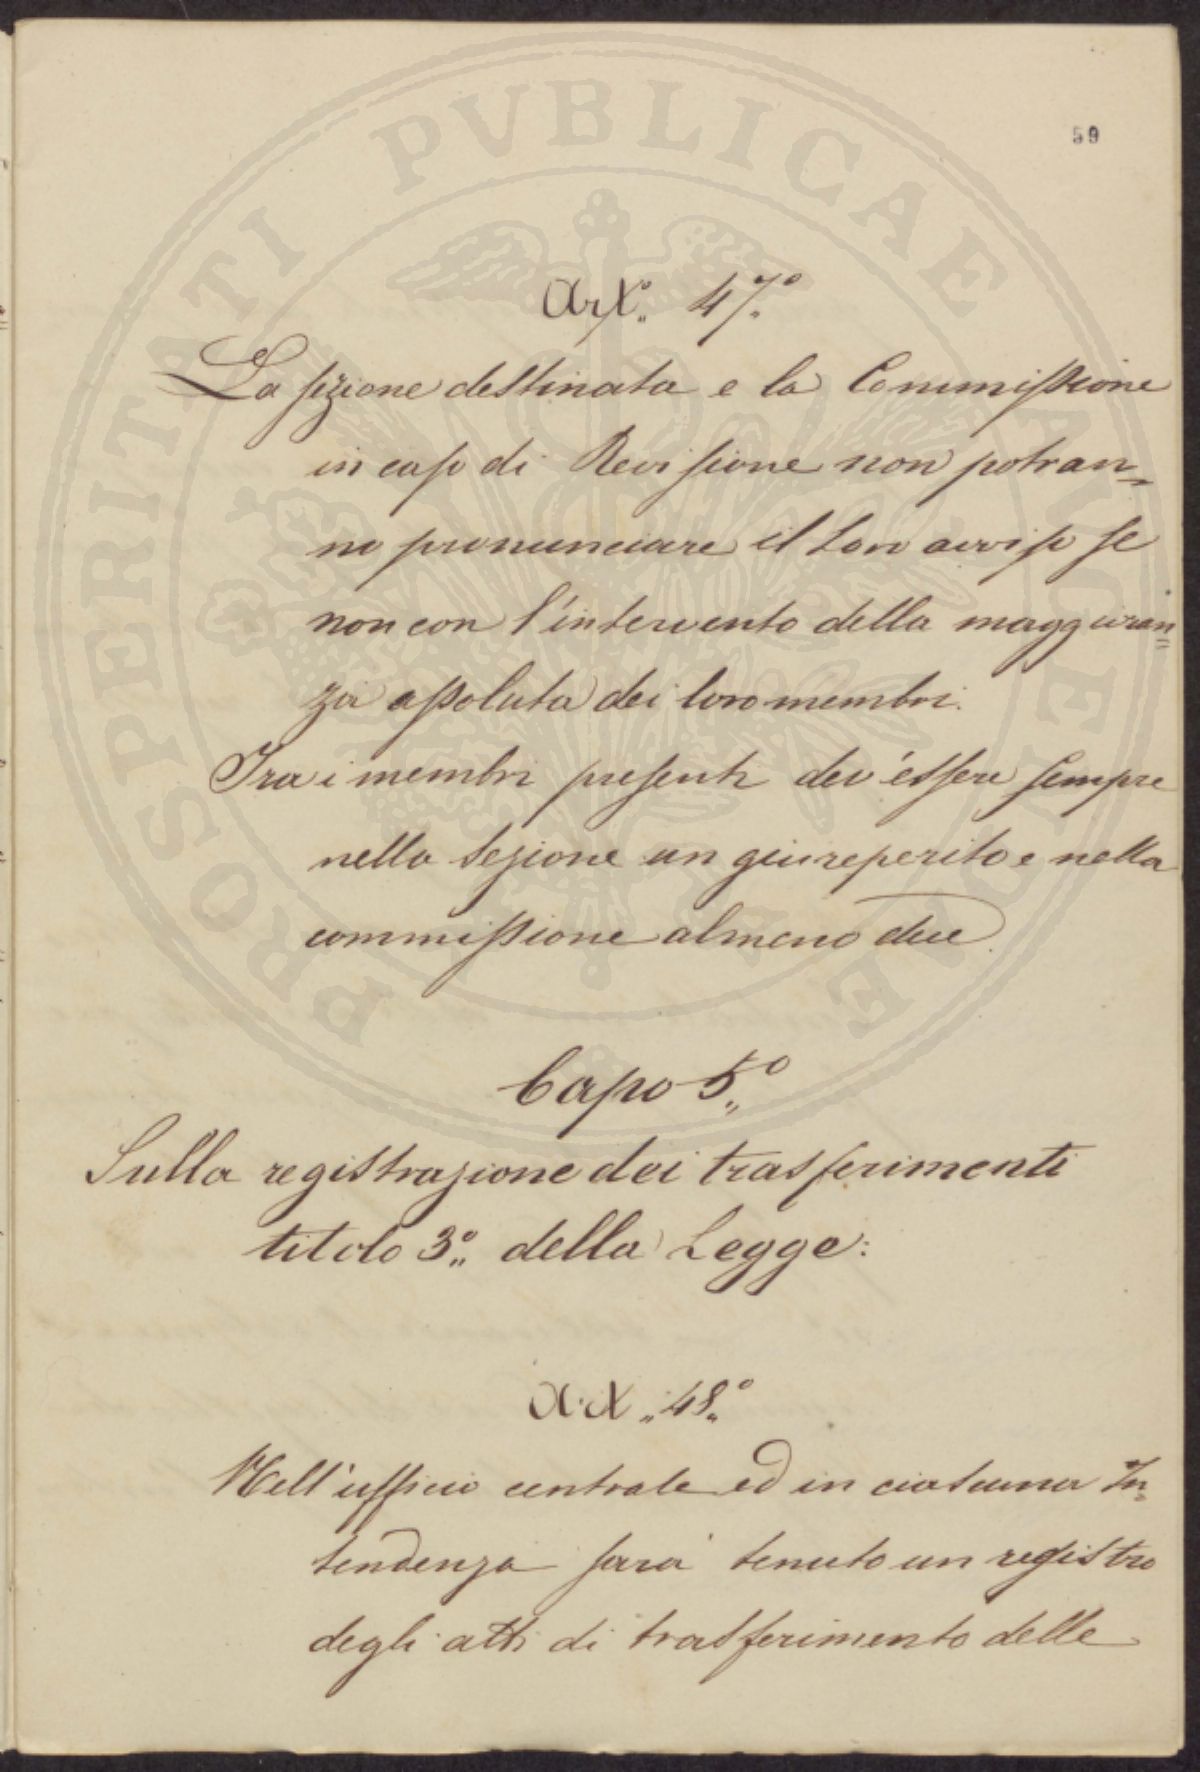 PROSPERITATI PVBLICAE AVGENDAE
59
Art.° 47.°
La sezione destinata e la Commissione
in caso di Revisione non potran=
no pronunciare il loro avviso se
non con l'intervento della maggioran=
za assoluta dei loro membri.
Tra i membri presenti dev'essere sempre
nella sezione un giureperito e nella
commissione almeno due.
Capo 5.°
Sulla registrazione dei trasferimenti
titolo 3.° della Legge:
Art. 48.°
Nell'ufficio centrale ed in ciascuna In=
tendenza sarà tenuto un registro
degli atti di trasferimento delle